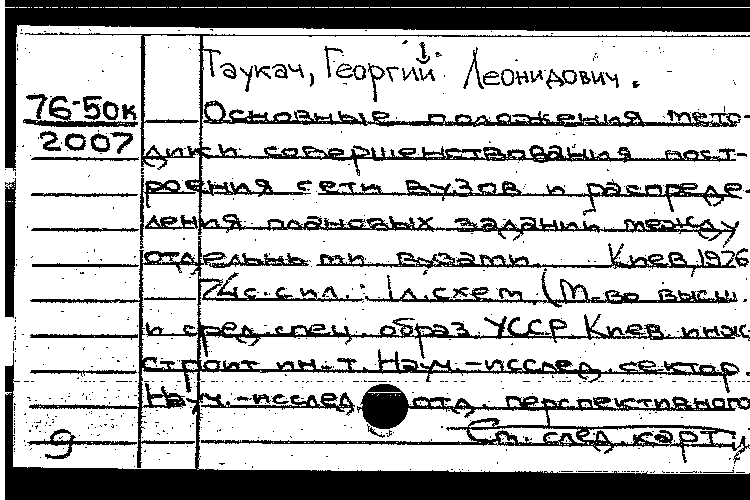 Таукач, Георгий Леонидович.
76-50к
2007
Основные положения мето-
дики совершенствования пост-
роения сети вузов и распреде-
ления плановых заданий между
отдельными вузами. Киев, 1976
74 с. с ил.; 1 л. схем. (М-во высш.
и сред. спец. образ. УССР. Киев. инж.
строит. ин-т. Науч.-исслед. сектор.
Науч.-исслед. отд. перспективного
См. след. карт.
9